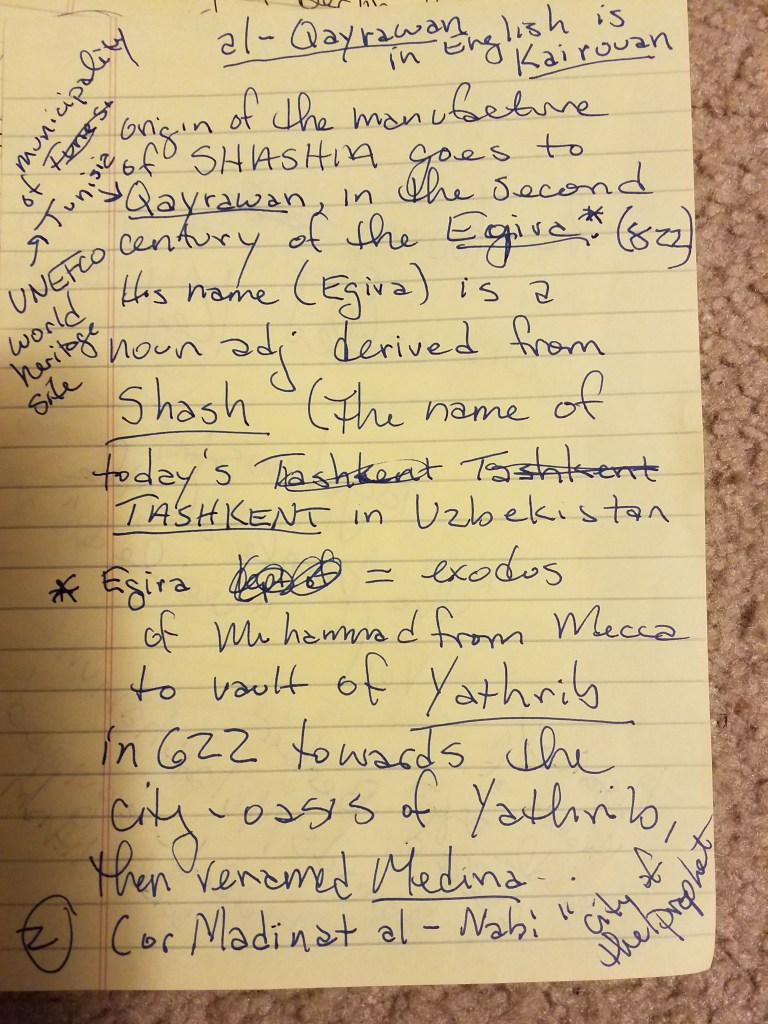 al-Qayrawan
in English is
Kairouan
municipality
of Tunis
Tunisia
UNEFCO
world
heritage
site
origin of the manufacture
of SHASHIA goes to
Qayrawan, in the second
century of the Egira*. (822)
His name (Egira) is a
noun adj derived from
Shash (The name of
today's Tashkent Tashkent
TASHKENT in Uzbekistan
* Egira = exodus
of Muhammad from Mecca
to vault of Yathrib
in 622 towards the
city-oasis of Yathrib,
then renamed Medina..
(or Madinat al-Nabi "city of
the Prophet
2